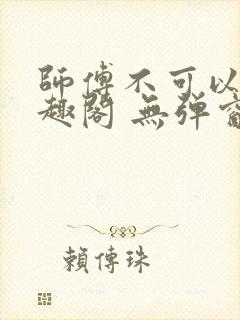 師傅不可以
趣閣 無彈窗
賴傳珠